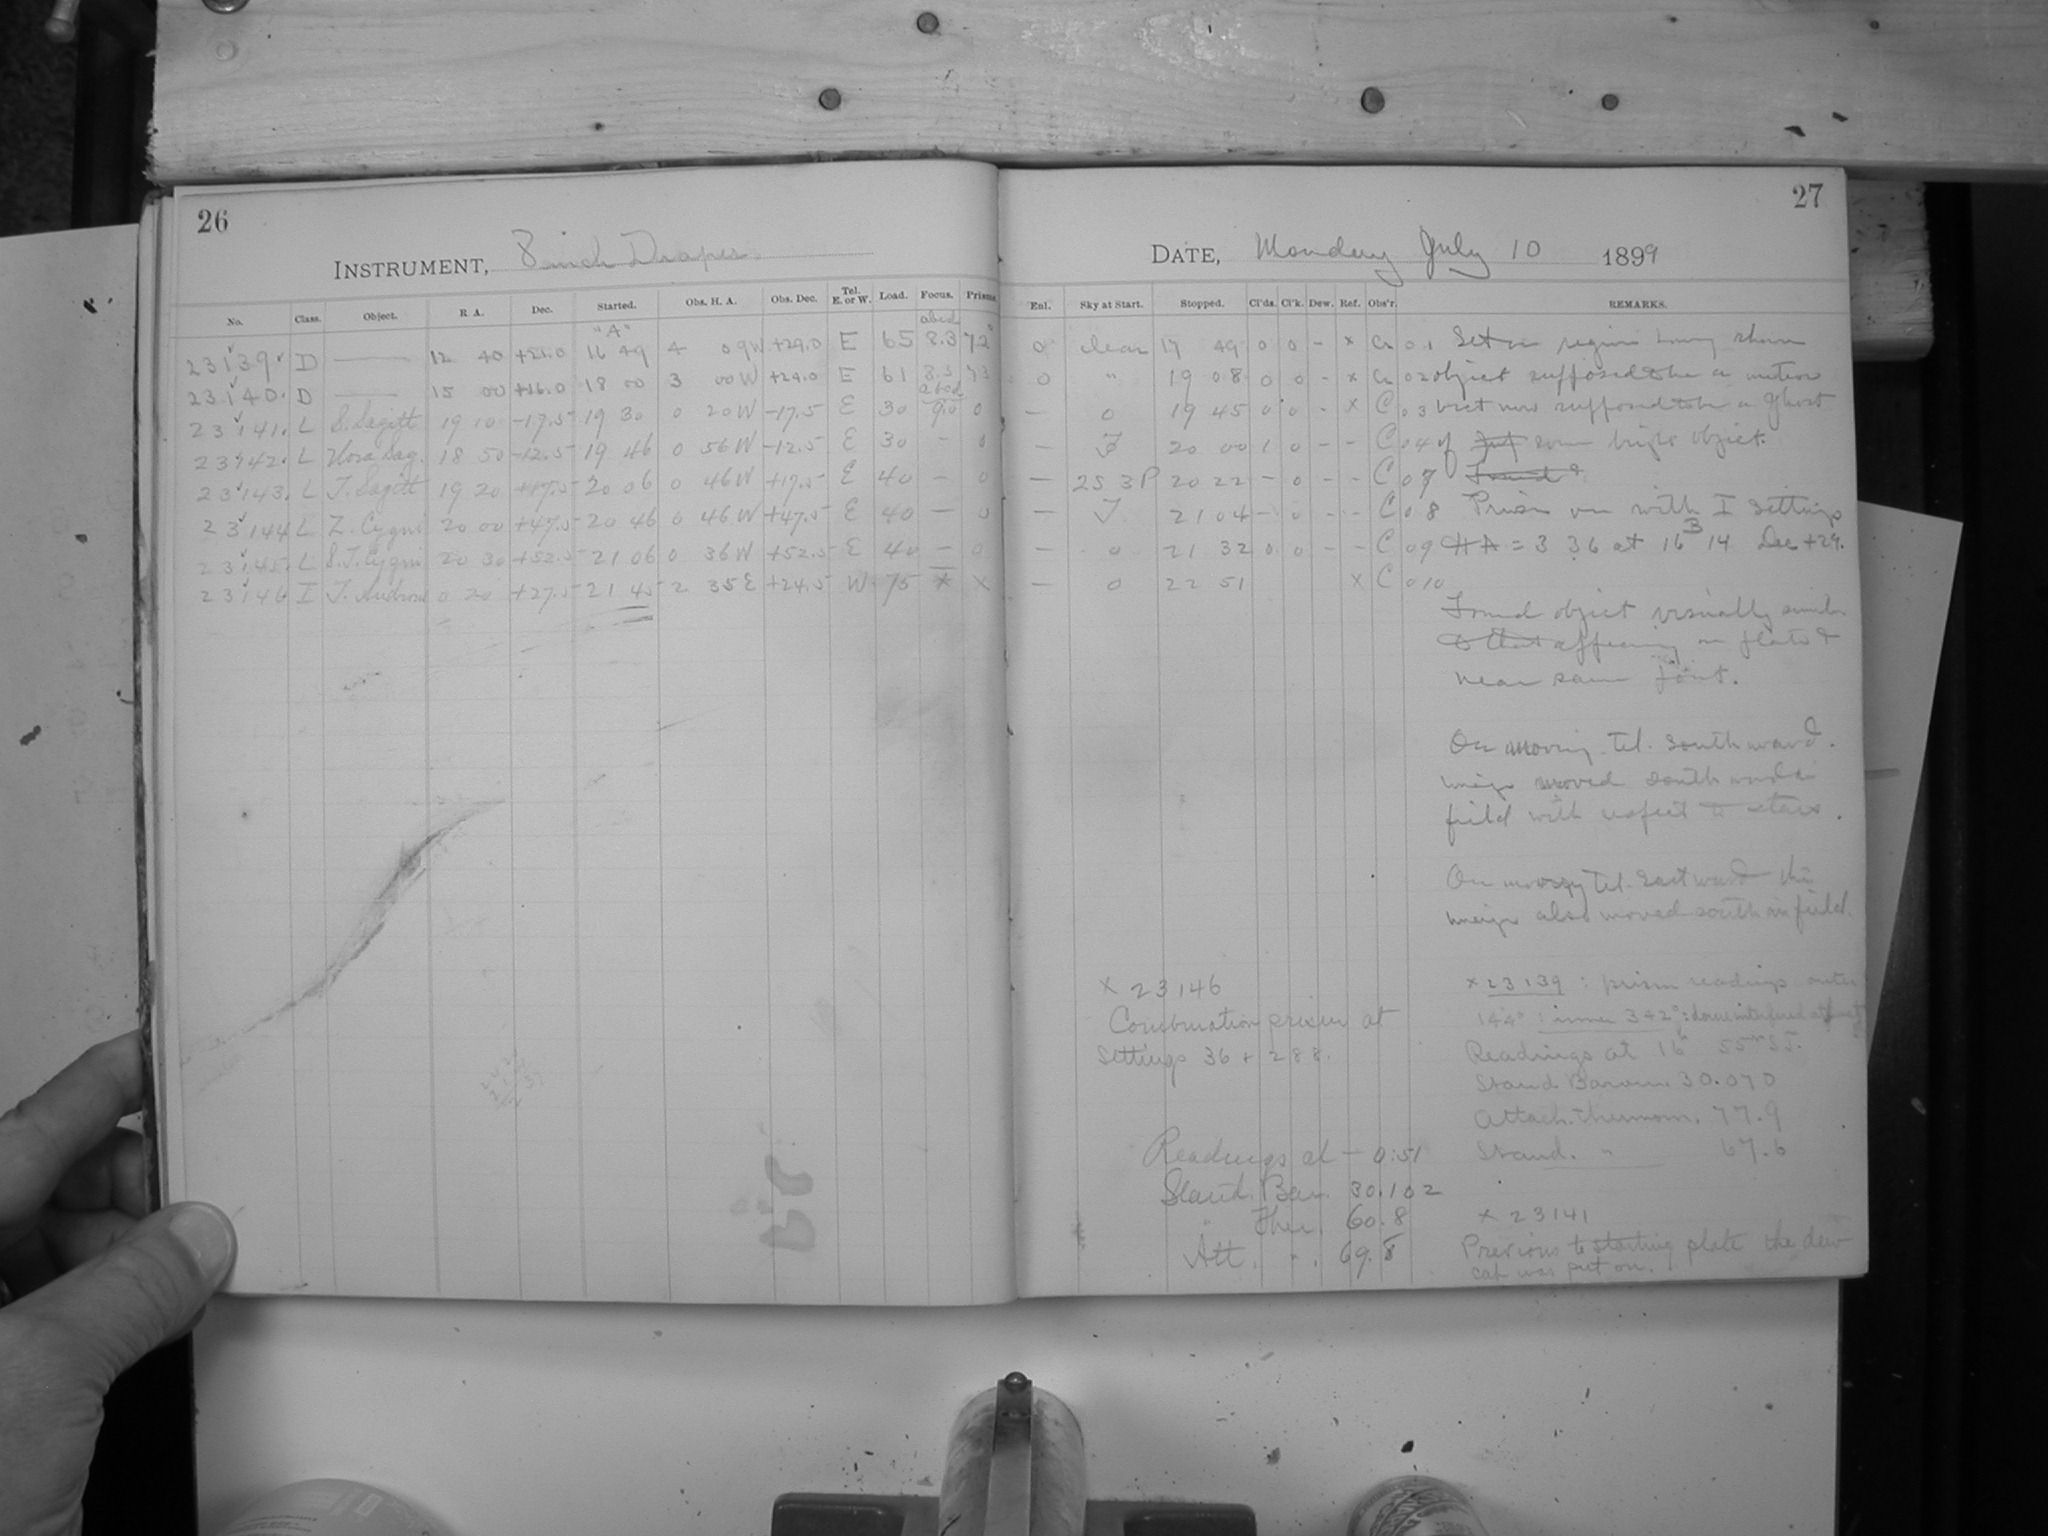 26
INSTRUMENT, 8 inch Draper.
No. Class. Object. R. A. Dec. Started. Obs. H. A. Obs. Dec. Tel. E. or W. Load. Focus. Prisms
"A" abcd
23139. D — 12 40 +21.0 16 49 4 09W +29.0 E 65 8.3 72°
23140. D — 15 00 +16.0 18 00 3 00W +29.0 E 61 8.3 73
abcd
23141. L S. Sagitt 19 10 -17.5 19 30 0 20W -17.5 E 30 9.0 0
23142. L Nova Sag. 18 50 -12.5 19 46 0 56W -12.5 E 30 - 0
23143. L T. Sagitt 19 20 +17.5 20 06 0 46W +17.5 E 40 - 0
23144 L Z. Cygni 20 00 +47.5 20 46 0 46W +47.5 E 40 - 0
23145. L S.T. Cygni 20 30 +52.5 21 06 0 36W +52.5 E 40 - 0
23146 I T. Androm 0 20 +27.5 21 45 2 35E +24.5 W. 75 * x
27
DATE, Monday July 10 1899
Enl. Sky at Start. Stopped. Cl'ds. Cl'k. Dew. Ref. Obs'r. REMARKS.
0 clear 17 49 0 0 - x 01 Set on region
0 " 19 08 0 0 - x 02 object supposed to be a meteor
- 0 19 45 0 0 - x C 03 but now supposed to be a ghost
- F 20 00 1 0 - - C 04 of some bright object.
- 2S 3P 20 22 - 0 - - C 07 Found
- F 21 04 - 0 - - C 08 Prism on with I settings
- 0 21 32 0 0 - - C 09 HA = 3 36 at 16 14 Dec +29.
- 0 22 51 x C 010
Found object visually similar
to that appearing on plate &
near same point.
On moving Tel. southward.
image moved southward in
field with respect to stars.
On moving Tel. Eastward the
image also moved south in field.
x 23146
Combination prism at
settings 36 + 288.
Readings at - 0:51
Stand. Bar. 30.102
" Ther. 60.8
Att. " . 69.8
x 23139 : prism readings outer
144° : inner 342° : dome interfered
Readings at 16h 55m S.T.
Stand Barom. 30.070
Attach. thermom. 77.9
Stand. " 67.6
x 23141
Previous to starting plate the dew
cap was put on.